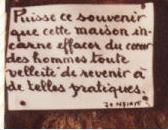 Puisse ce souvenir
que cette maison in-
carne effacer du cœur
des hommes toute
velléité de revenir à
de telles pratiques.
J. NDIAYE